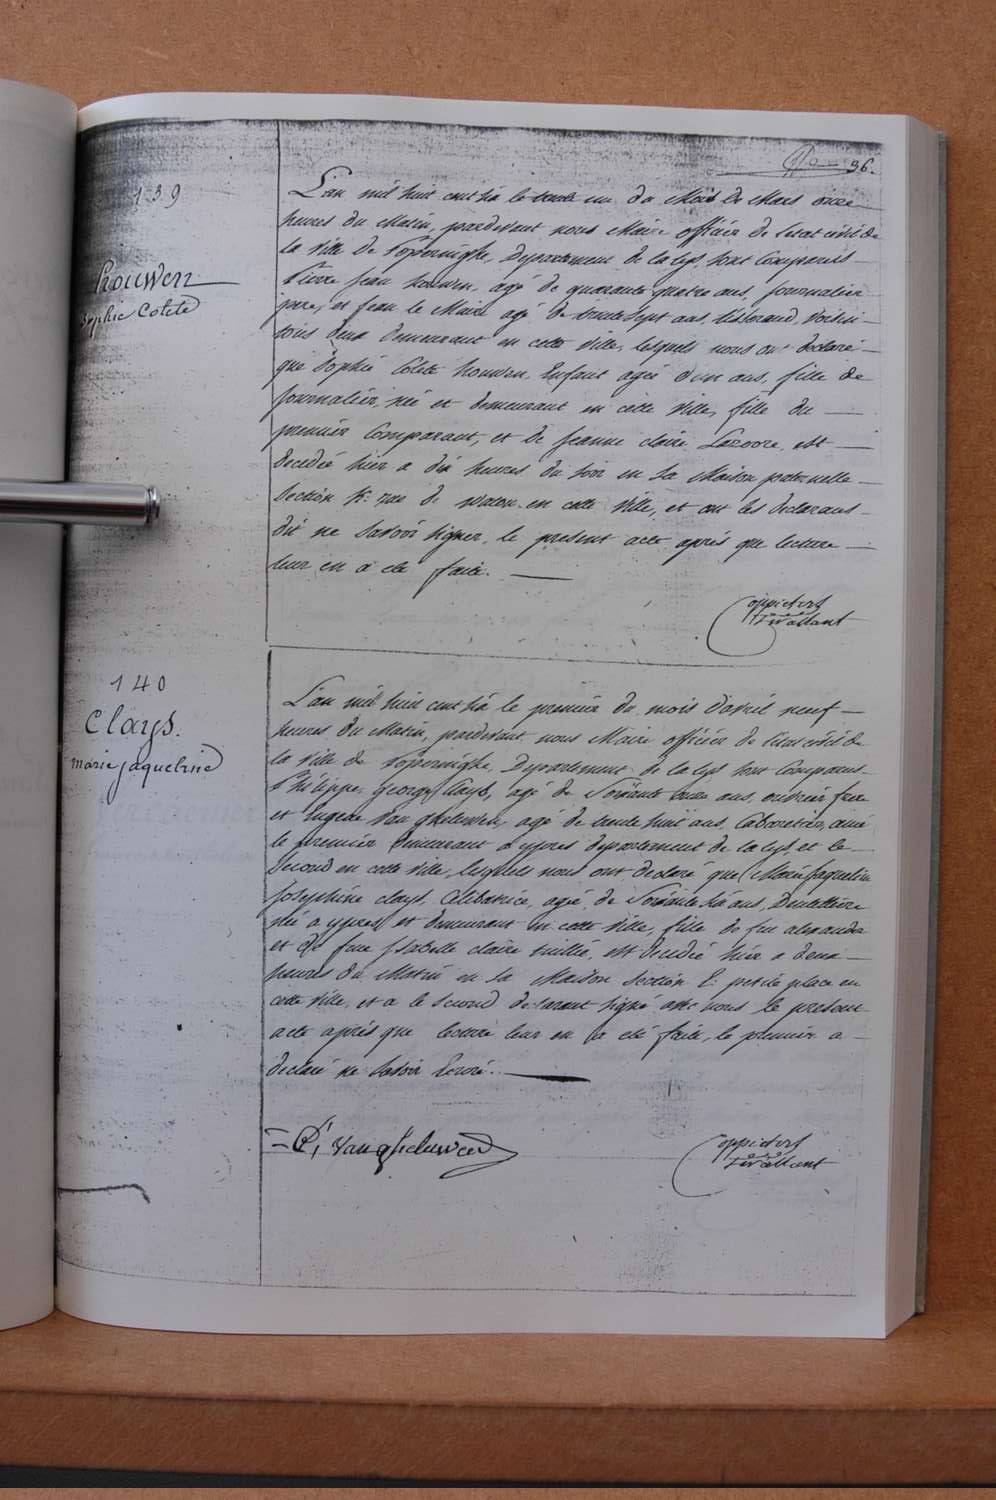 36.
139
Houwen
Sophie Colete
L'an mil huit cent six le trente un du Mois de Mars onze
heures du Matin, pardevant nous Maire officier de l'état civil de
la Ville de Poperinghe, Departement de la Lys, sont Comparus
Pierre Jean houwen, agé de quarante quatre ans, Journalier
pere, et Jean le Maire agé de trente sept ans, tisserand, Voisin
tous deux demeurant en cette ville, lesquels nous ont declaré
que Sophie Colete houwen, Enfant agée d'un ans, fille de
Journalier, née et demeurant en cette Ville, fille du
premier Comparant, et de Jeanne claire, est
decedée hier a dix heures du soir en sa Maison paternelle
Section rue de watou en cette Ville, et ont les declarans
dit ne Savoir signer, le present acte après que lecture
leur en a été faite.
140
Clays.
marie Jaqueline
L'an mil huit cent six le premier du mois d'avril neuf
heures du Matin, pardevant nous Maire officier de l'état civil de
la Ville de Poperinghe, Departement de la Lys sont Comparus
Philippe George Clays, agé de Soixante onze ans, ouvrier frere
et Eugene Van gheluwen, agé de trente huit ans, Cabaretier, ami
le premier demeurant a ypres departement de la Lys et le
Second en cette ville, lesquels nous ont declaré que Marie Jaqueline
Josephine clays, Celibatrice, agée de Soixante six ans, Dentellière
née a ypres, et demeurant en cette Ville, fille de feu alexander
et de feue Isabelle claire, est decedée hier a deux
heures du Matin en sa Maison Section E: petite place en
cette Ville, et a le Second declarant signé avec nous le present
acte après que lecture leur en a été faite, le premier a
declaré ne Savoir Ecrire.
Van gheluwen